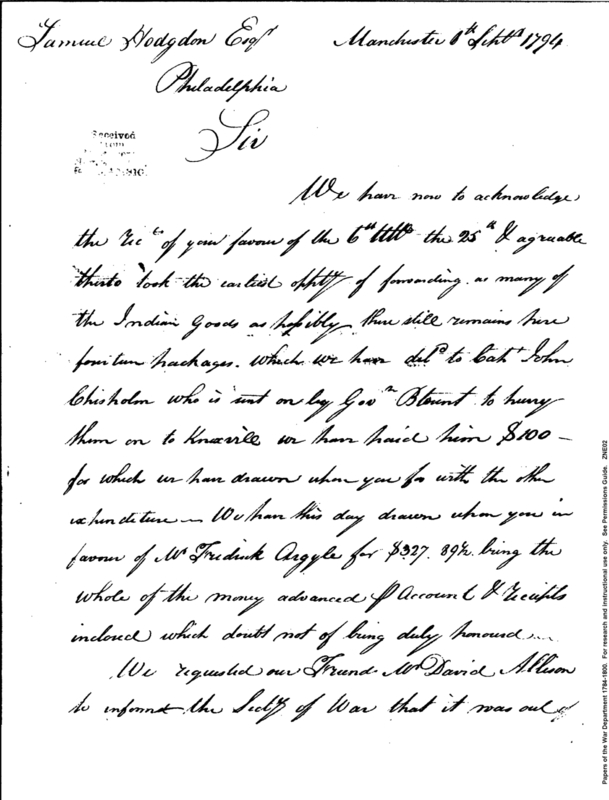 Samuel Hodgdon Esqr
Manchester 1th Septr 1794
Philadelphia
Received
from
Sir
We have now to acknowledge
the rects of your favour of the 6th the 25th & agreuable
thereto took the earliest oppty of forwarding as many of
the Indian Goods as possibly there still remains here
fourteen packages. which we have deld to Capt John
Chisholm who is sent on by Govnr Blount to hurry
them on to Knoxvill we have paid him $100 —
for which we have drawn upon you for with the other
expenditure — We have this day drawn upon you in
favour of Mr Fredirick Argyle for $327. 89½ being the
whole of the money advanced P Account & Receipts
inclosed which doubt not of being duly honoured —
We requested our Friend Mr David Allison
to inform the Secty of War that it was out of
Papers of the War Department 1784-1800. For research and instructional use only. See Permissions Guide. ZNE02